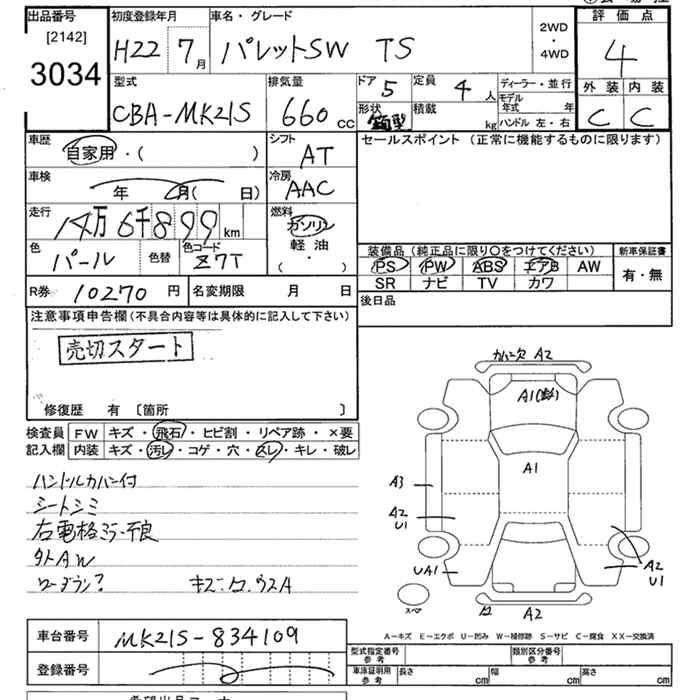 出品番号
[2142]
3034
初度登録年月
H22 7月
車名・グレード
パレットSW TS
2WD
・
4WD
評価点
4
外装 内装
C C
型式
CBA-MK21S
排気量
660 cc
ドア 5
定員 4 人
形状 箱型
積載 kg
ディーラー・並行
モデル年式 年
ハンドル 左・右
車歴
自家用・( )
シフト
AT
セールスポイント (正常に機能するものに限ります)
車検
年 月( 日)
冷房
AAC
走行
14万6千899 km
燃料
ガソリン
軽油
( ・ )
色
パール
色替
色コード
Z7T
装備品 (純正品に限り○をつけてください)
PS PW ABS エアB AW
SR ナビ TV カワ
新車保証書
有・無
R券 10270 円
名変期限 月 日
後日品
注意事項申告欄(不具合内容等は具体的に記入して下さい)
売切スタート
修復歴 有 〔箇所 〕
検査員
記入欄
FW キズ・飛石・ヒビ割・リペア跡・×要
内装 キズ・汚レ・コゲ・穴・スレ・キレ・破レ
ハンドルカバー付
シートシミ
右電格ミラー不良
外AW
キズ・凹・ウスA
カバー欠 A2
A1
A1
A3
A2
U1
UA1
A2
U1
スペア
A2
A-キズ E-エクボ U-凹み W-補修跡 S-サビ C-腐食 XX-交換済
車台番号 MK21S-834109
登録番号
型式指定番号
参考
類別区分番号
参考
車庫証明用
参考
長さ cm
幅 cm
高さ cm